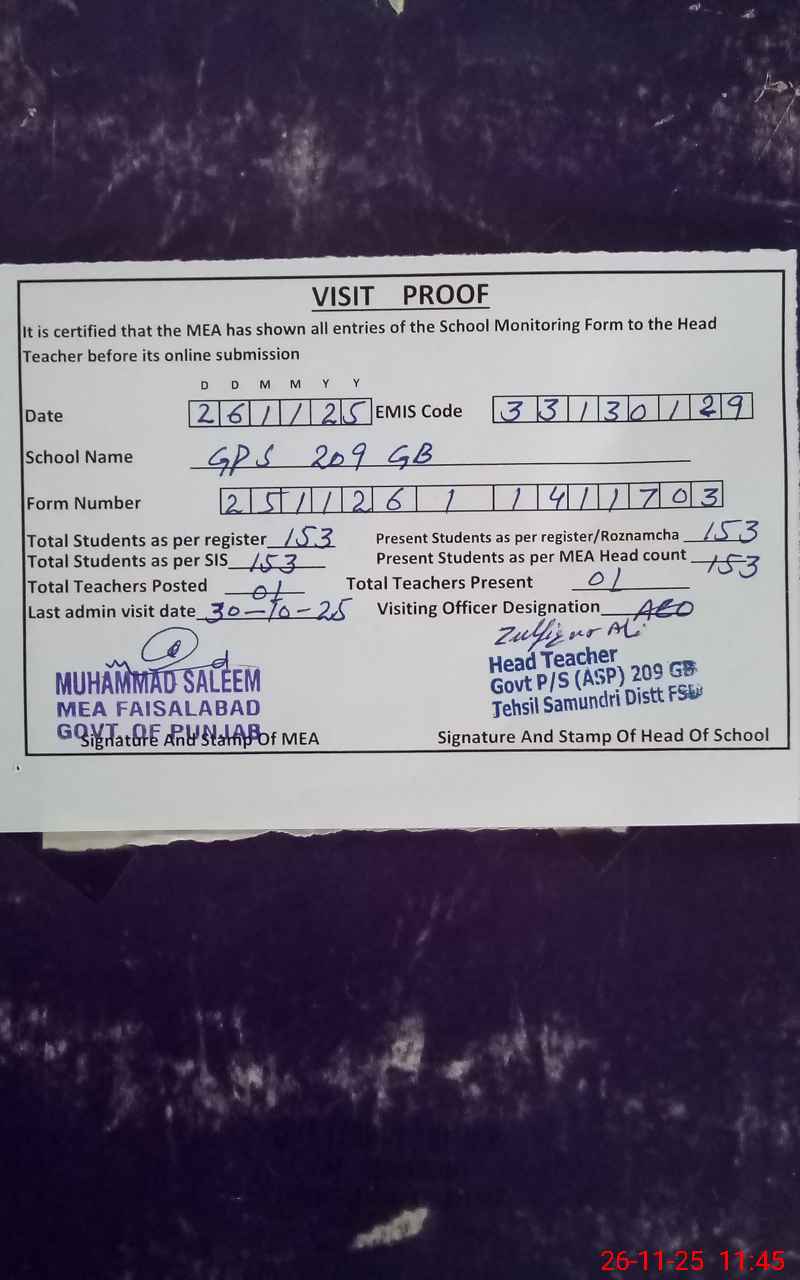 VISIT PROOF
It is certified that the MEA has shown all entries of the School Monitoring Form to the Head
Teacher before its online submission
D D M M Y Y
Date 2 6 1 1 2 5 EMIS Code 3 3 1 3 0 1 2 9
School Name GPS 209 GB
Form Number 2 5 1 1 2 6 1 1 4 1 1 7 0 3
Total Students as per register 153 Present Students as per register/Roznamcha 153
Total Students as per SIS 153 Present Students as per MEA Head count 153
Total Teachers Posted 01 Total Teachers Present 01
Last admin visit date 30-10-25 Visiting Officer Designation AEO
Zulfiqar Ali
MUHAMMAD SALEEM
MEA FAISALABAD
GOVT. OF PUNJAB
Signature And Stamp Of MEA
Head Teacher
Govt P/S (ASP) 209 GB
Tehsil Samundri Distt FSD
Signature And Stamp Of Head Of School
26-11-25 11:45